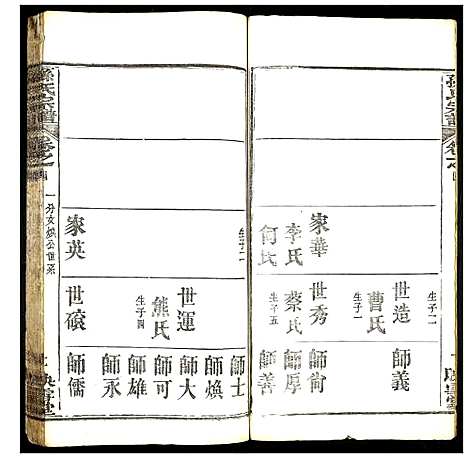 孫氏宗譜
卷之四
家華
李氏
何氏
生子二
生子二
世造
曹氏
生子一
世秀
蔡氏
生子五
師義
師尚
師厚
師善
家英
世運
熊氏
生子四
世磙
師士
師煥
師大
師可
師雄
師永
師儒
孫氏宗譜
卷之四
一分文煥公世系